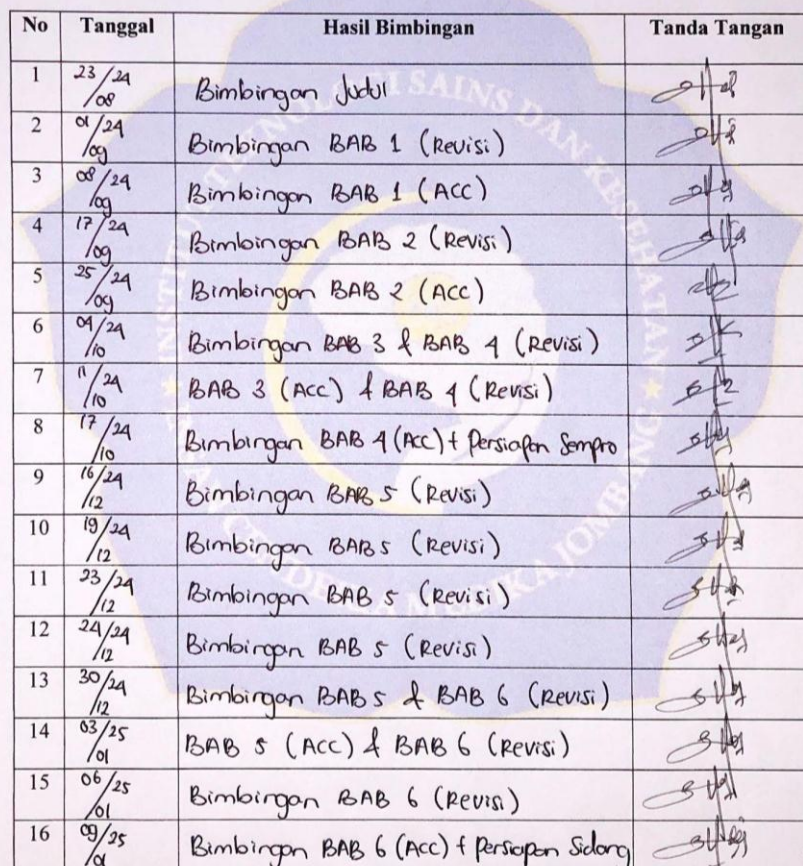 No Tanggal Hasil Bimbingan Tanda Tangan
1 23/24/08 Bimbingan Judul
2 01/24/09 Bimbingan BAB 1 (Revisi)
3 08/24/09 Bimbingan BAB 1 (ACC)
4 17/24/09 Bimbingan BAB 2 (Revisi)
5 25/24/09 Bimbingan BAB 2 (ACC)
6 04/24/10 Bimbingan BAB 3 & BAB 4 (Revisi)
7 11/24/10 BAB 3 (ACC) & BAB 4 (Revisi)
8 17/24/10 Bimbingan BAB 4 (ACC) + Persiapan Sempro
9 16/24/12 Bimbingan BAB 5 (Revisi)
10 19/24/12 Bimbingan BAB 5 (Revisi)
11 23/24/12 Bimbingan BAB 5 (Revisi)
12 24/24/12 Bimbingan BAB 5 (Revisi)
13 30/24/12 Bimbingan BAB 5 & BAB 6 (Revisi)
14 03/25/01 BAB 5 (ACC) & BAB 6 (Revisi)
15 06/25/01 Bimbingan BAB 6 (Revisi)
16 09/25/01 Bimbingan BAB 6 (ACC) + Persiapan Sidang
SAINS DAN KESEHATAN
JOMBANG